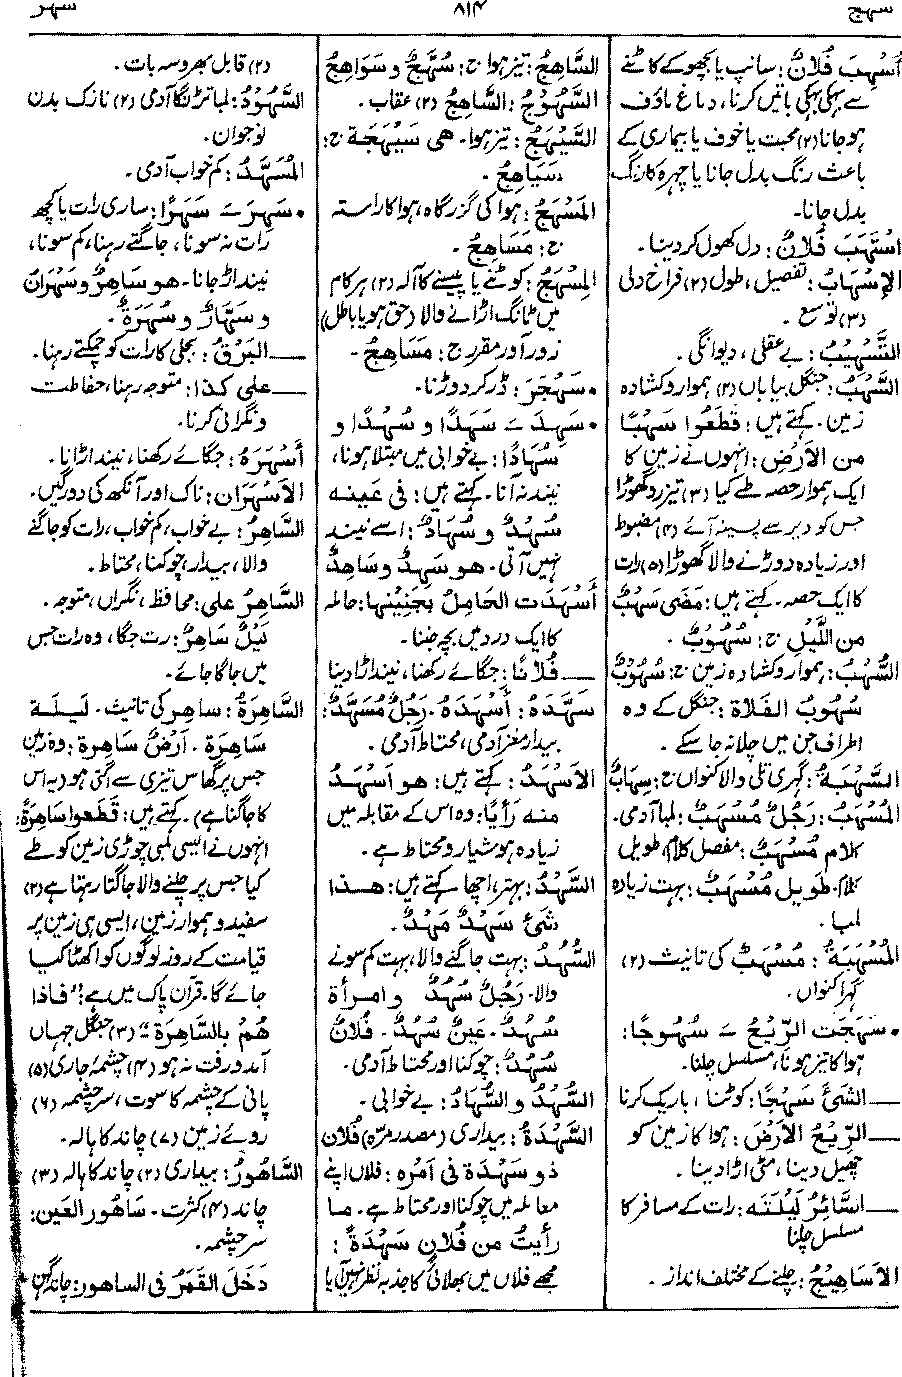 سهج
۸۱۴
سهر
أُسْهِبَ فُلَانٌ: سانپ یا بچھو کے کاٹنے
سے بہکی بہکی باتیں کرنا، دماغ ماؤف
ہو جانا (۲) محبت یا خوف یا بیماری کے
باعث رنگ بدل جانا یا چہرہ کا رنگ
بدل جانا۔
اسْتَهَبَ فُلَانٌ: دل کھول کر دینا۔
الإِسْهَابُ: تفصیل، طول (۲) فراخ دلی
(۳) توسع ۔
التَّسْهِيْبُ: بے عقلی، دیوانگی۔
السَّهْبُ: جنگل بیاباں (۲) ہموار و کشادہ
زمین۔ کہتے ہیں: قَطَعُوا سَهْبًا
من الأرْضِ: انہوں نے زمین کا
ایک ہموار حصہ طے کیا (۳) تیز رو گھوڑا
جس کو دیر سے پسینہ آئے (۴) مضبوط
اور زیادہ دوڑنے والا گھوڑا (۵) رات
کا ایک حصہ۔ کہتے ہیں: مَضَى سَهْبٌ
من اللَّيْلِ ج: سُهُوْبٌ ۔
السُّهْبُ: ہموار و کشادہ زمین ج: سُهُوْبٌ
سُهُوْبُ الفَلَاة: جنگل کے وہ
اطراف جن میں چلا نہ جا سکے ۔
السَّهْبَةُ: گہری تلی والا کنواں ج: سِهَابٌ
المُسْهَبُ: رَجُلٌ مُسْهَبٌ: لمبا آدمی۔
كلام مُسْهَبٌ: مفصل کلام، طویل
کلام۔ طَوِيل مُسْهَبٌ: بہت زیادہ
لمبا۔
المُسْهَبَةُ: مُسْهَبٌ کی تانیث (۲)
گہرا کنواں۔
• سَهَجَت الرِّيْحُ ــَـ سُهُوجًا:
ہوا کا تیز ہونا، مسلسل چلنا۔
ــــ الشَّيْءَ سَهْجًا: کوٹنا، باریک کرنا
ــــ الرِّيْحُ الأرْضَ: ہوا کا زمین کو
چھیل دینا، مٹی اڑا دینا ۔
ــــ السَّائِرُ لَيْلَتَه: رات کے مسافر کا
مسلسل چلنا
الأسَاهِيْجُ: چلنے کے مختلف انداز ۔
السَّاهِجُ: تیز ہوا ج: سُهَّجٌ و سَوَاهِجُ
السَّهُوْجُ: السَّاهِجُ (۲) عقاب۔
السَّيْهَجُ: تیز ہوا۔ هى سَيْهَجَة ج:
سَيَاهِجُ ۔
المَسْهَجُ: ہوا کی گزرگاہ، ہوا کا راستہ
ج: مَسَاهِجُ ۔
المِسْهَجُ: کوٹنے یا پیسنے کا آلہ (۲) ہر کام
میں ٹانگ اڑانے والا (حق ہو یا باطل)
زور آور مقرر ج: مَسَاهِجُ ۔
• سَهْجَرَ: ڈر کر دوڑنا۔
• سَهِدَ ــَـ سَهَدًا و سُهْدًا و
سُهَادًا: بے خوابی میں مبتلا ہونا،
نیند نہ آنا۔ کہتے ہیں: فى عَيْنه
سُهْدٌ و سُهَادٌ: اسے نیند
نہیں آتی۔ هو سَهِدٌ و سَاهِدٌ
أَسْهَدَت الحَامِلُ بِجَنِيْنِها: حاملہ
کا ایک درد میں بچہ جننا۔
ــــ فُلَانًا: جگائے رکھنا، نیند اڑا دینا
سَهَّدَه: أَسْهَدَه۔ رَجُلٌ مُسَهَّدٌ:
بیدار مغز آدمی، محتاط آدمی۔
الأَسْهَدُ: کہتے ہیں: هو أَسْهَدُ
منه رَأْيًا: وہ اس کے مقابلہ میں
زیادہ ہوشیار و محتاط ہے۔
السَّهْدُ: بہتر، اچھا کہتے ہیں: هذا
شَيْءٌ سَهْدٌ مَهْدٌ۔
السُّهُدُ: بہت جاگنے والا، بہت کم سونے
والا۔ رَجُلٌ سُهُدٌ و امرأة
سُهُدٌ۔ عَيْنٌ سُهُدٌ۔ فُلَانٌ
سُهُدٌ: چوکنا اور محتاط آدمی۔
السُّهْدُ والسُّهَادُ: بے خوابی۔
السَّهْدَةُ: بیداری (مصدر مرّہ) فُلَان
ذو سَهْدَة فى أَمْرِه: فلاں اپنے
معاملہ میں چوکنا اور محتاط ہے۔ ما
رأيتُ من فُلَانٍ سَهْدَةً:
مجھے فلاں میں بھلائی کا جذبہ نظر نہیں آیا
(۲) قابل بھروسہ بات۔
السَّهْوَدُ: لمبا تڑنگا آدمی (۲) نازک بدن
نوجوان۔
المُسَهَّدُ: کم خواب آدمی۔
• سَهِرَ ــَـ سَهَرًا: ساری رات یا کچھ
رات نہ سونا، جاگتے رہنا، کم سونا،
نیند اڑ جانا۔ هو سَاهِرٌ و سَهْرَان
و سَهَّارٌ و سُهَرَةٌ۔
ــــ البَرْقُ: بجلی کا رات کو چمکتے رہنا۔
ــــ على كذا: متوجہ رہنا، حفاظت
و نگرانی کرنا۔
أَسْهَرَهُ: جگائے رکھنا، نیند اڑانا۔
الأَسْهَرَان: ناک اور آنکھ کی دو رگیں۔
السَّاهِرُ: بے خواب، کم خواب، رات کو جاگنے
والا، بیدار، چوکنا، محتاط۔
السَّاهِرُ على: محافظ، نگراں، متوجہ۔
لَيْلٌ سَاهِرٌ: رت جگا، وہ رات جس
میں جاگا جائے۔
السَّاهِرَةُ: ساهر کی تانیث۔ لَيلَة
سَاهِرَة۔ أَرْضٌ سَاهِرة: وہ زمین
جس پر گھاس تیزی سے اگتی ہو (یہ اس
کا جاگنا ہے)۔ کہتے ہیں: قَطَعوا سَاهِرَةً:
انہوں نے ایسی لمبی چوڑی زمین کو طے
کیا جس پر چلنے والا جاگتا رہتا ہے (۲)
سفید و ہموار زمین، ایسی ہی زمین پر
قیامت کے روز لوگوں کو اکٹھا کیا
جائے گا۔ قرآن پاک میں ہے: "فَاذا
هُمْ بالسَّاهِرَة" (۳) جنگل جہاں
آمد و رفت نہ ہو (۴) چشمۂ جاری (۵)
پانی کے چشمہ کا سوت، سرچشمہ (۶)
روئے زمین (۷) چاند کا ہالہ۔
السَّاهُورُ: بیداری (۲) چاند کا ہالہ (۳)
چاند (۴) کثرت۔ سَاهُور العَين:
سرچشمہ۔
دَخَلَ القَمَرُ فى الساهور: چاند گہن